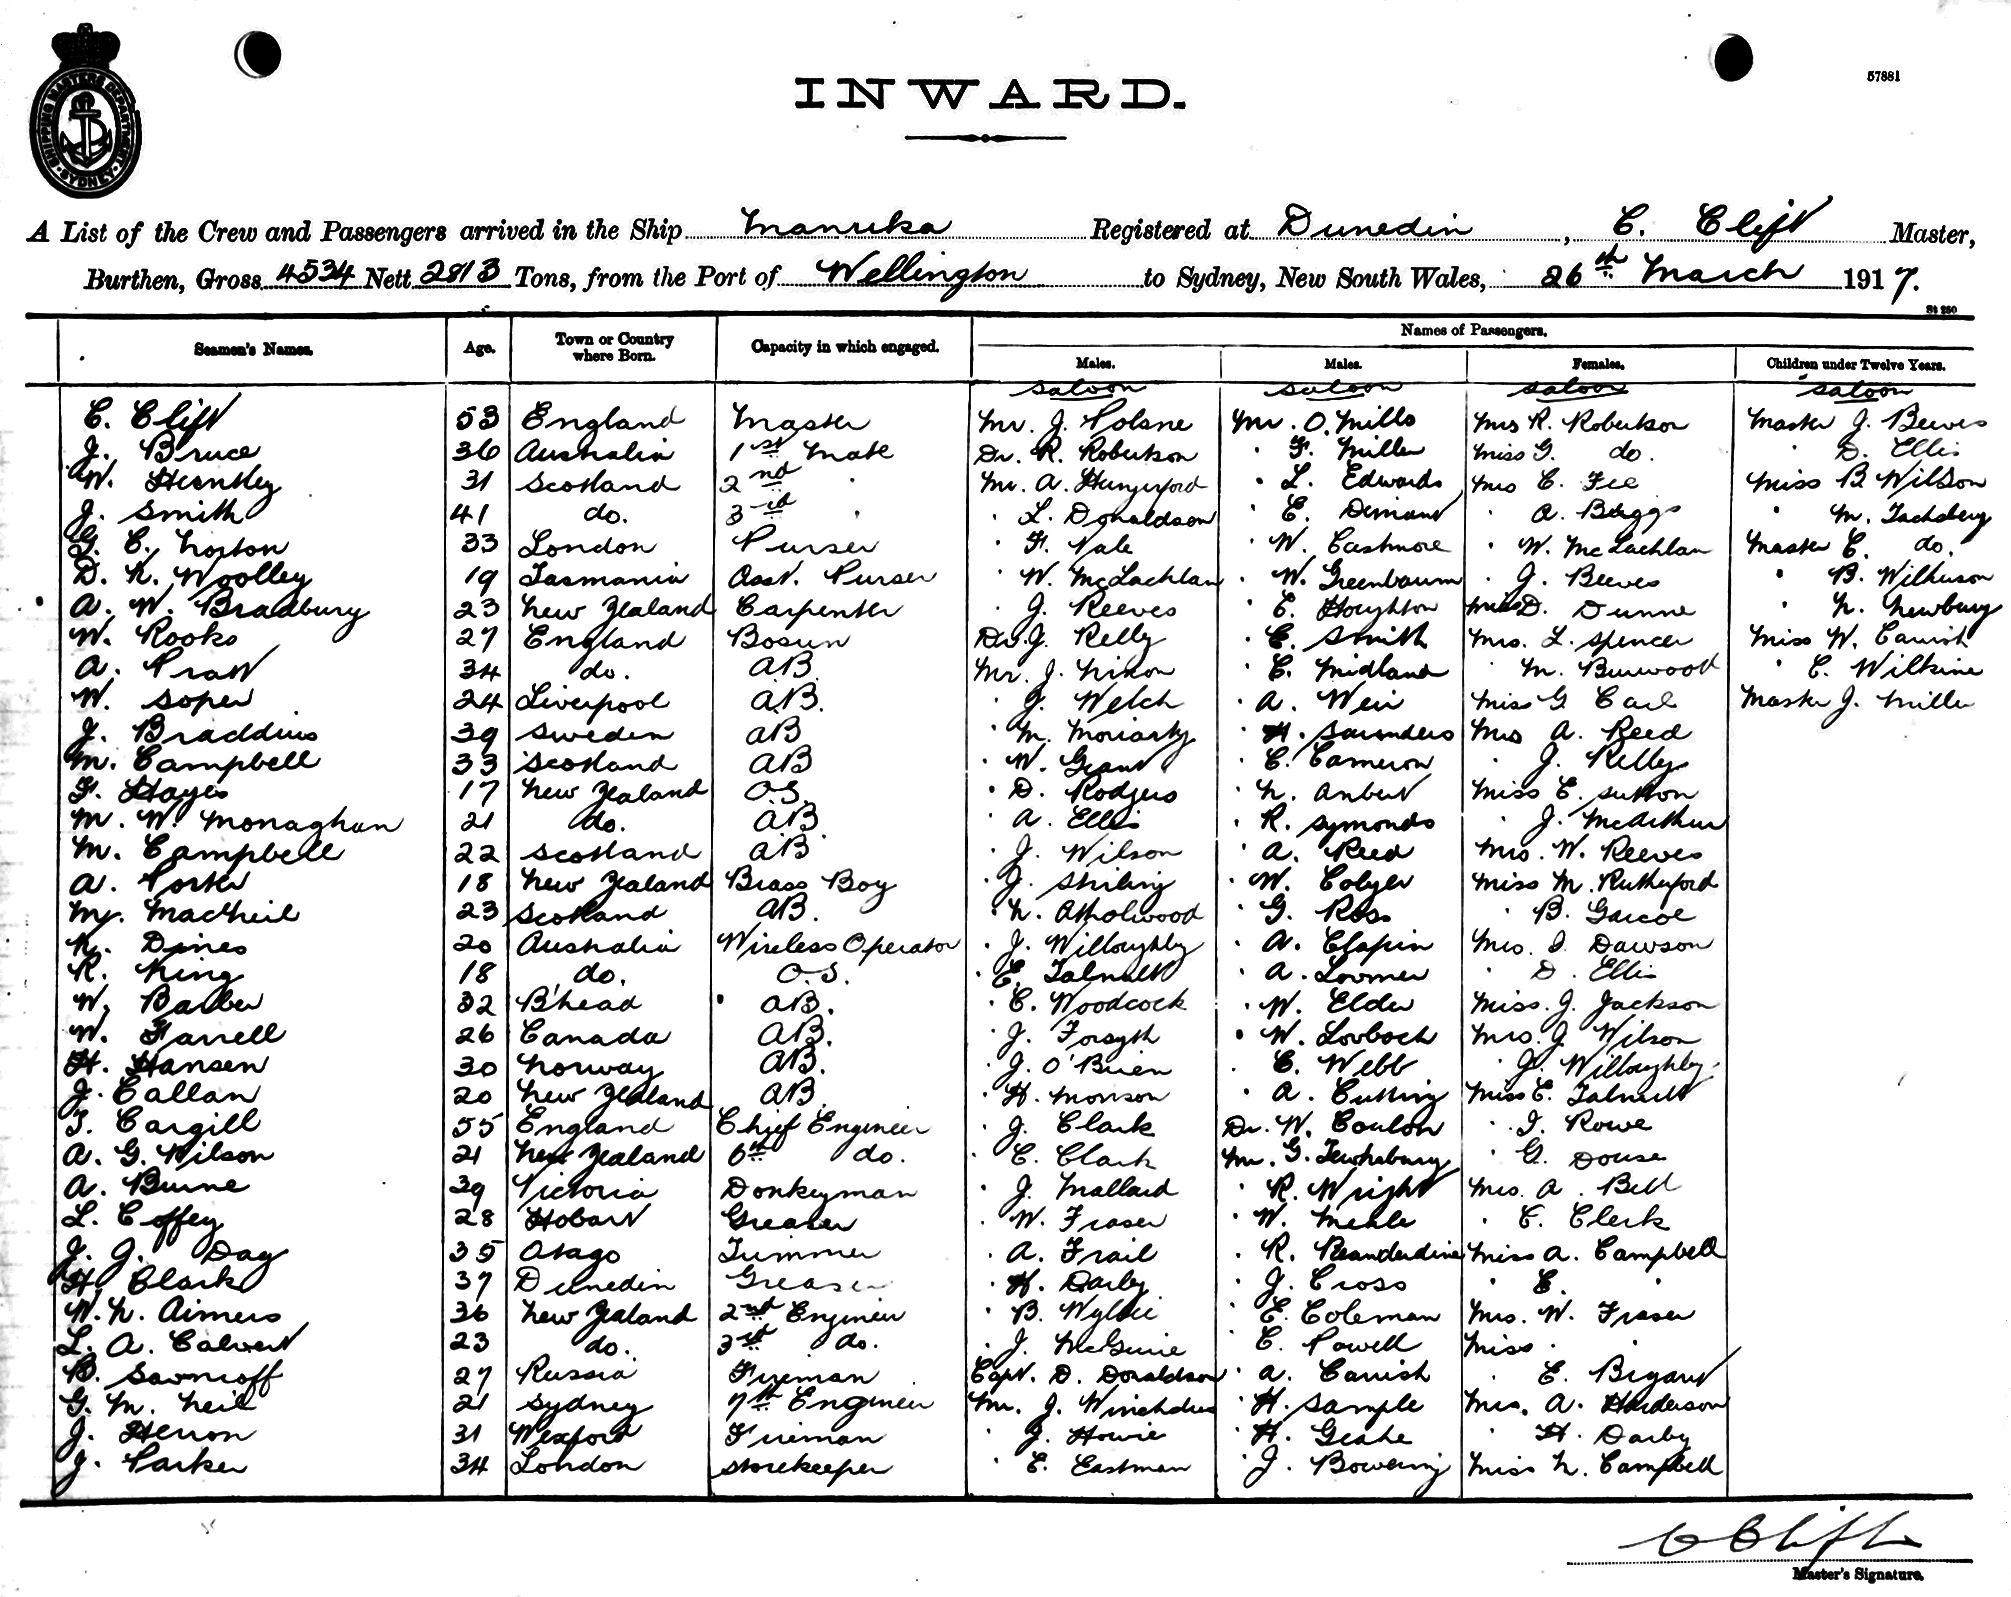 SHIPPING MASTERS DEPARTMENT SYDNEY
57881
INWARD.
A List of the Crew and Passengers arrived in the Ship Manuka Registered at Dunedin, C. Clift Master,
Burthen, Gross 4534 Nett 2813 Tons, from the Port of Wellington to Sydney, New South Wales, 26th March 1917.
St 250
Seamen's Names. Age. Town or Country where Born. Capacity in which engaged. Names of Passengers.
Males. Males. Females. Children under Twelve Years.
Saloon Saloon Saloon Saloon
C. Clift 53 England Master Mr. J. Polsne Mr. O. Mills Mrs R. Robertson Master J. Beeves
J. Bruce 36 Australia 1st Mate Dr. R. Robertson " F. Miller Miss G. do. " D. Ellis
W. Huntley 31 Scotland 2nd " Mr. A. Hungerford " L. Edwards Mrs C. Fee Miss B Wilson
J. Smith 41 do. 3rd " " L. Donaldson " E. Dimant " A. Baggs " M.
G. C. Norton 33 London Purser " F. Vale " W. Cashmore " W. McLachlan Master C. do.
D. N. Woolley 19 Tasmania Asst. Purser " W. McLachlan " W. Greenbaum " J. Beeves " B. Wilkinson
A. W. Bradbury 23 New Zealand Carpenter " J. Reeves " C. Houghton Miss D. Dunne " N. Newbury
W. Rooks 27 England Bosun Dr. J. Kelly " E. Smith Mrs. L. Spencer Miss W. Carrish
A. Pratt 34 do. AB Mr. J. Nixon " C. Midland " M. Burwood " C. Wilkins
W. Soper 24 Liverpool AB. " J. Welch " A. Weir Miss G Carl Master J. Miller
J. Braddins 39 Sweden AB " M. Moriarty " H. Saunders Mrs A. Reed
M. Campbell 33 Scotland AB " W. Grant " C. Cameron " J. Kelly
F. Hayes 17 New Zealand O.S. " D. Rodgers " N. Anbert Miss E. Sutton
M. W. Monaghan 21 do. AB. " A. Ellis " R. Symonds " J. McArthur
M. Campbell 22 Scotland AB " J. Wilson " A. Reed Mrs. W. Reeves
A. Porter 18 New Zealand Brass Boy " J. Shiling " W. Colyer Miss M. Rutherford
My. MacNeil 23 Scotland AB. " N. Atholwood " G. Ross " B. Garcoe
R. Dines 20 Australia Wireless Operator " J. Willoughby " A. Clapin Mrs. I. Dawson
R. King 18 do. O.S. " E. Talnutt " A. Lormer " D. Ellis
W. Barber 32 B'head AB. " C. Woodcock " W. Elder Miss. J. Jackson
W. Farrell 26 Canada AB. " J. Forsyth " W. Lovboch Mrs. J Wilson
H. Hansen 30 Norway AB. " J. O'Brien " C. Webb " J. Willoughby
J. Callan 20 New Zealand AB " H. Monson " A. Cutting Miss E. Talnutt
T. Cargill 55 England Chief Engineer " J. Clark Dr. W. Coulon " I. Rowe
A. G. Wilson 21 New Zealand 6th do. " C. Clark Mr. G. Tewksbury " G. Douse
A. Burne 39 Victoria Donkeyman " J. Mallard " R. Wright Mrs. A. Bell
L. Coffey 28 Hobart Greaser " W. Fraser " W. Mehle " C. Clerk
J. J. Day 35 Otago Trimmer " A. Frail " R. Miss A. Campbell
H. Clark 37 Dunedin Greaser " H. Darby " J. Cross " E. "
W. N. Aimers 36 New Zealand 2nd Engineer " B. Wyllie " E. Coleman Mrs. W. Fraser
L. A. Calvert 23 do. 3rd do. " J. McGuire " C. Powell Miss " "
B. 27 Russia Fireman Capt. D. Donaldson " A. Carrish " E. Bryant
G. M. Neil 21 Sydney 7th Engineer Mr. J. " H. Sample Mrs. A. Henderson
J. Heron 31 Wexford Fireman " J. Howie " H. Geake " H. Darby
J. Parker 34 London Storekeeper " E. Eastman " J. Bowering Miss N. Campbell
C Clift
Master's Signature.